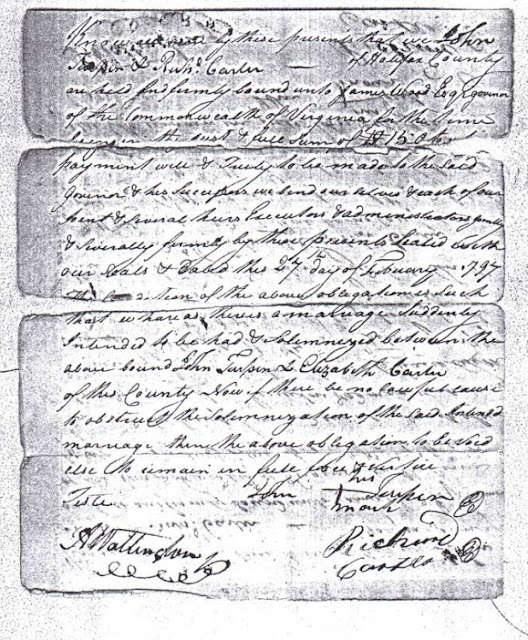 Know all men by these presents that we John
Turpin & Richd. Carter of Halifax County
are held and firmly bound unto James Wood Esqr. govenor
of the Commonwealth of Virginia for the time
being in the Just & full sum of $150 to
payment well & Truly to be made to the said
govenor & his successors we bend our selves & each of our
heirs Executors & administrators
& severally firmly by these presents Sealed with
our seals & dated this 27th day of February 1797
The Condition of the above obligation is such
that whareas there is a marriage Suddenly
Intended to be had & Solemnized between the
above bound John Turpin & Elizabeth Carter
of this County Now if there be no lawful cause
to obstruct the Solemnization of the said Intend
marriage then the above obligation to be void
else to remain in full force & virtue
his
Teste John Turpin
mark
A Wattington
Richard
Carter